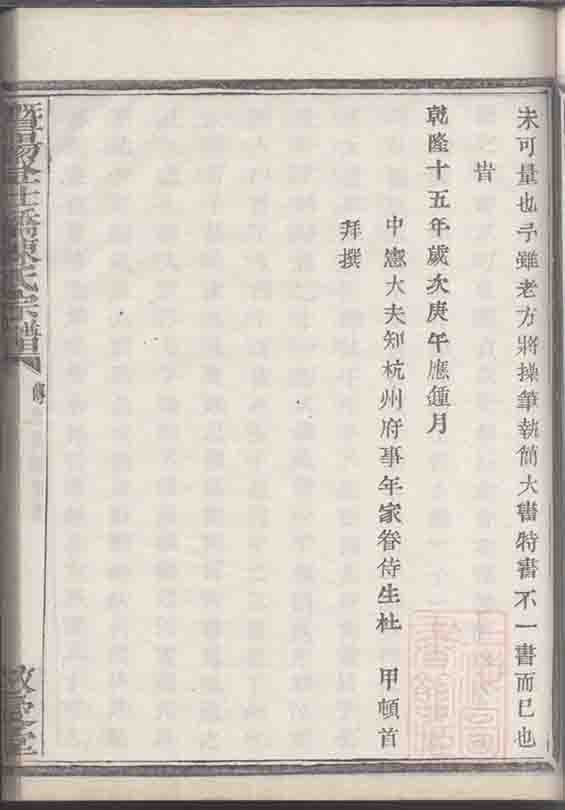 未可量也予雖老方將操筆執簡大書特書不一書而已也
旹
乾隆十五年歲次庚午應鍾月
中憲大夫知杭州府事年家眷侍生杜 甲頓首
拜撰
陳氏宗譜
傳
敦堂